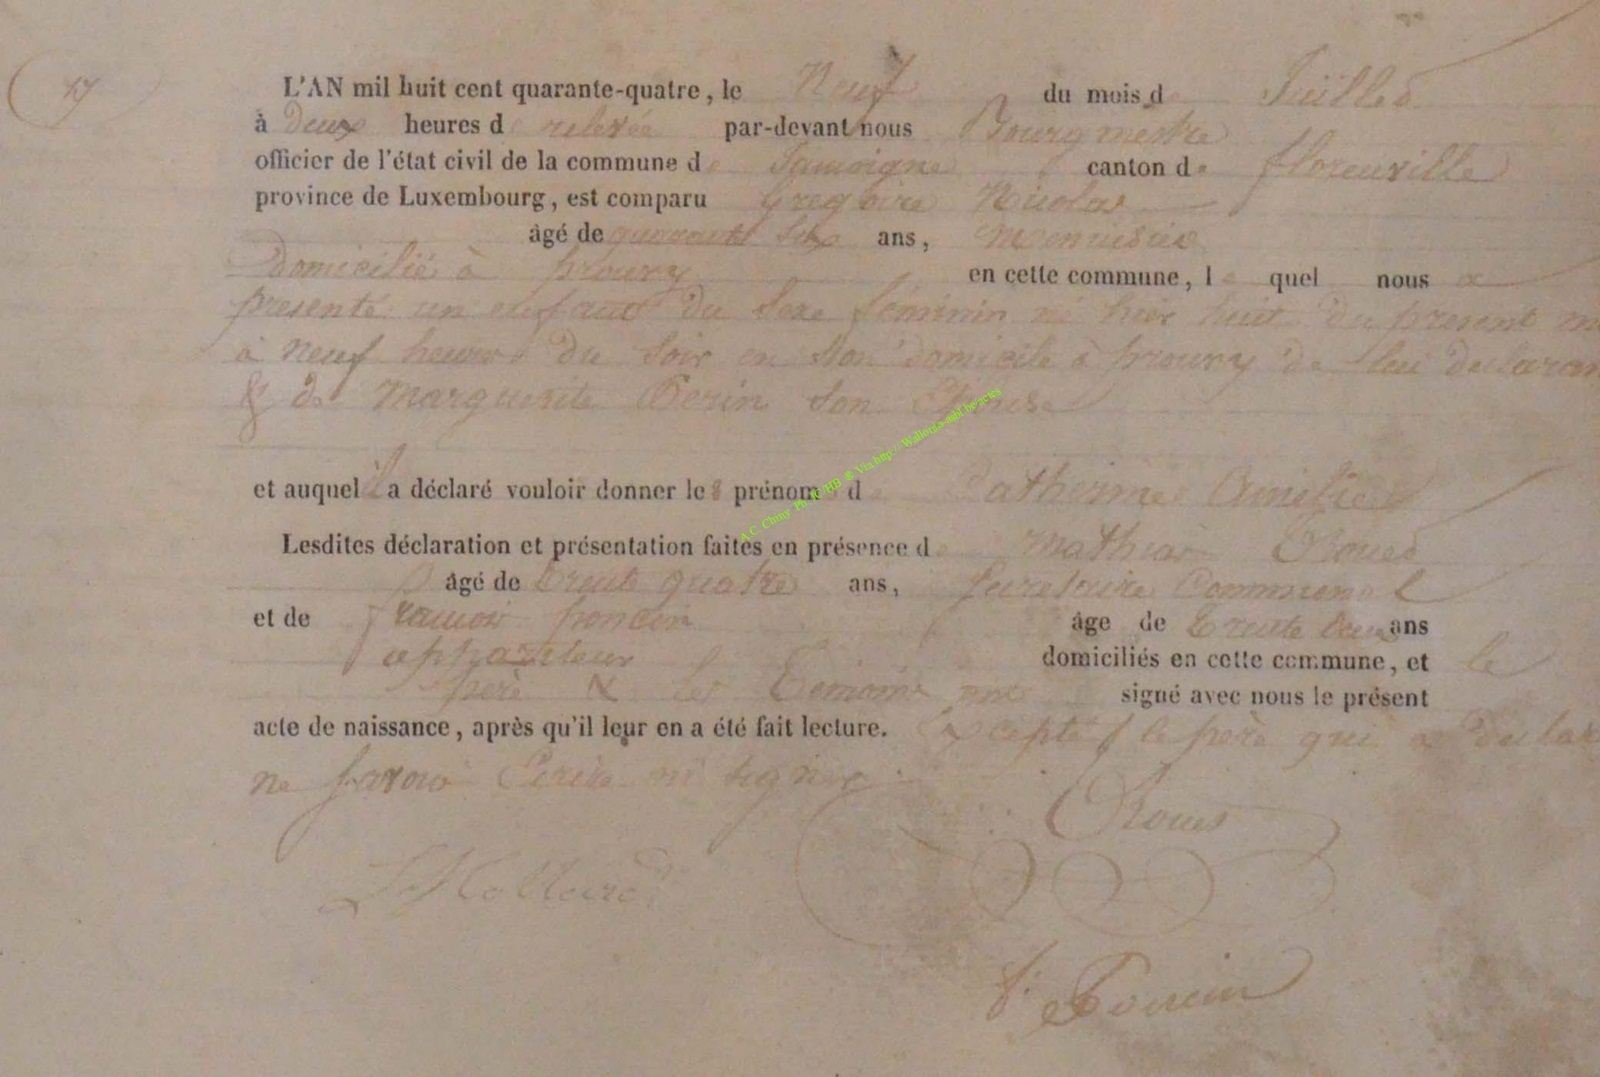 17
L'AN mil huit cent quarante-quatre, le Neuf du mois de Juillet
à deux heures de relevée par-devant nous Bourgmestre
officier de l'état civil de la commune de Jamoigne canton de florenville
province de Luxembourg, est comparu Gregoire Nicolas
âgé de quarante six ans, Menuisier
Domicilié à prouvy en cette commune, lequel nous a
présenté un enfant du Sexe féminin né hier huit du présent
à Neuf heures du Soir en Son domicile à prouvy de lui déclarant
& de Marguerite Perin Son Epouse
et auquel il a déclaré vouloir donner les prénoms de Catherine Amélie
Lesdites déclaration et présentation faites en présence de Mathias
âgé de trente quatre ans, Secretaire Communal
et de françois poncin âge de trente deux ans
domiciliés en cette commune, et le
père & les témoins ont signé avec nous le présent
acte de naissance, après qu'il leur en a été fait lecture. Excepté le père qui a
ne savoir Ecrire ni signer.
A.C. Chiny Ph. & HB & Via http://Wallonia-asbl.be/actes
f. Poncin